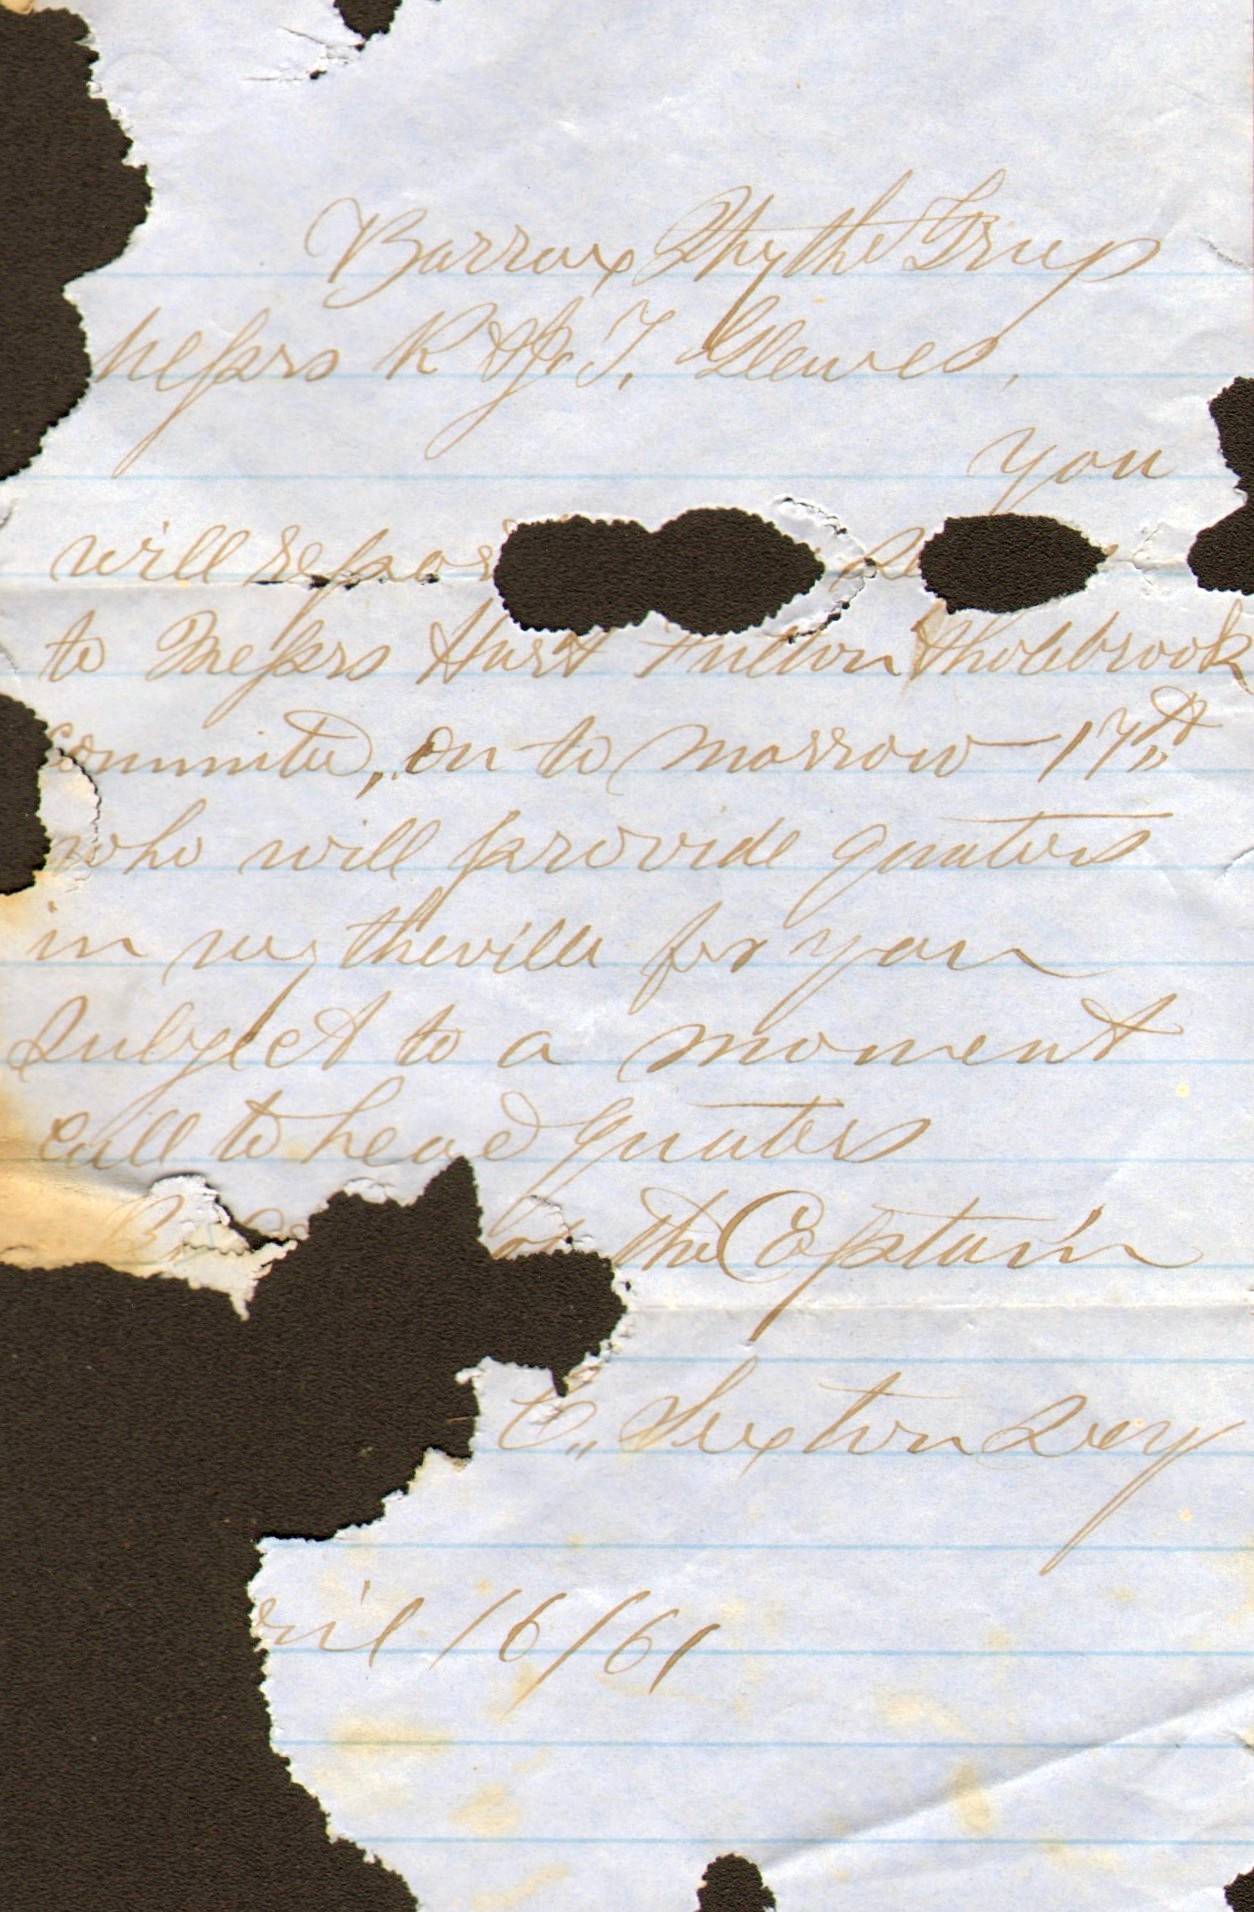 Barrax Wythe Greys
Messrs R & Jo T. Gleaves,
you
will repor
to Messrs Hurt Fulton & Holebrook
committe, on to morrow 17th
who will provide quaters
in wytheville for you
Subject to a moment
call to head quaters
of the Captain
C,, Sexton Secy
ril 16/61